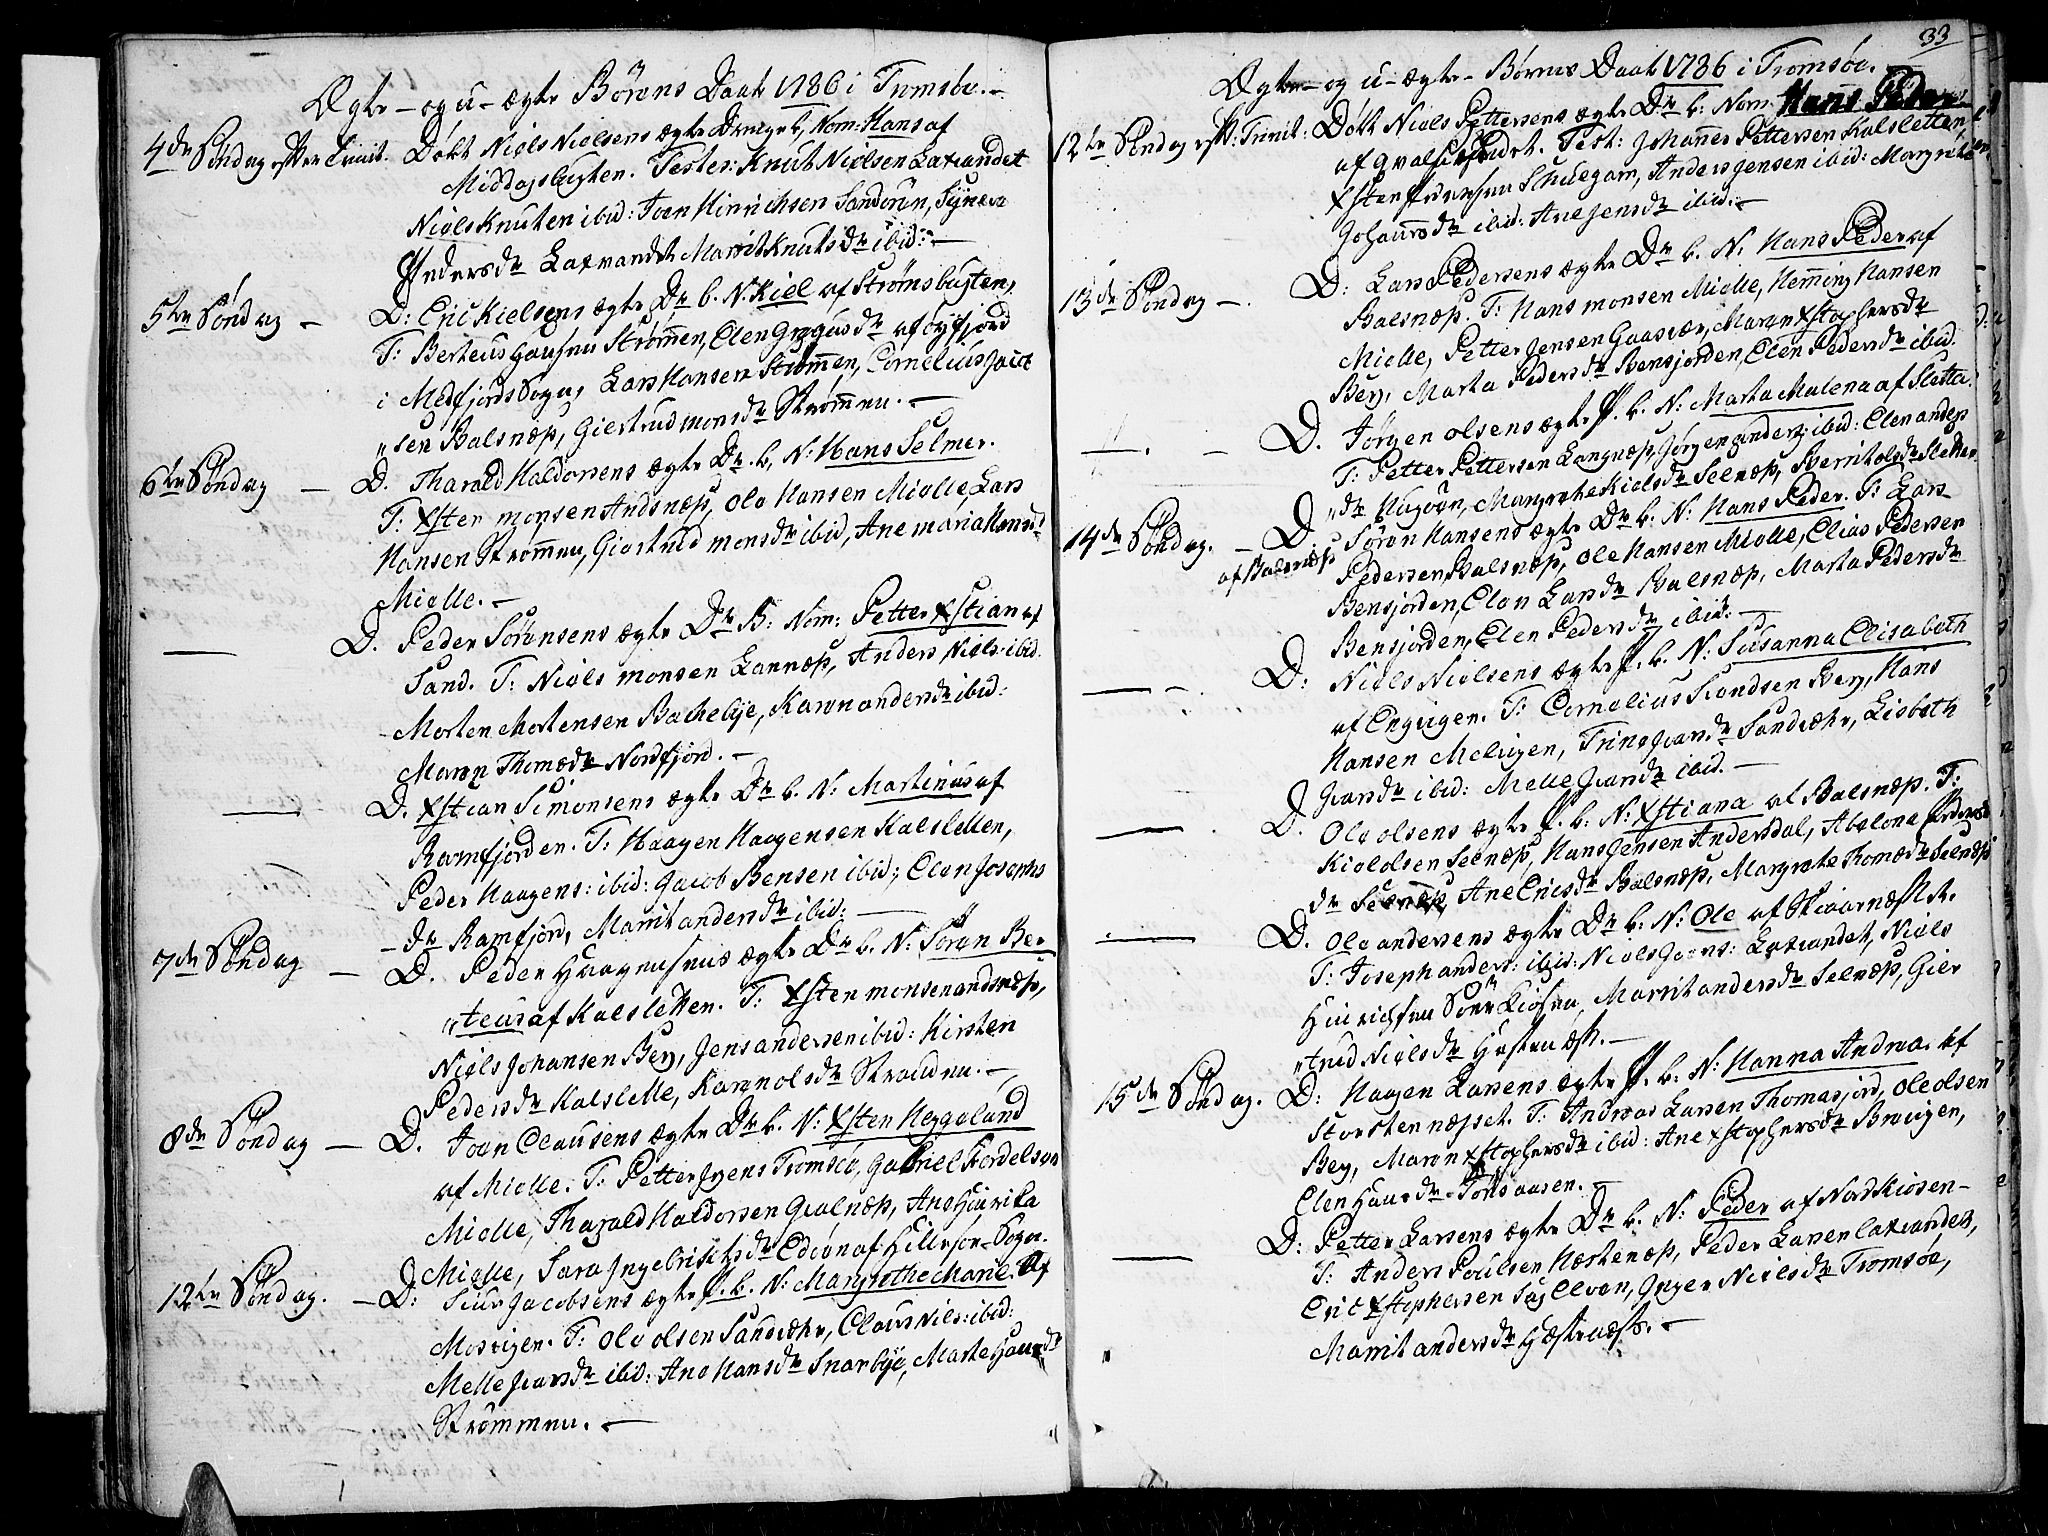 Ægte- og u-ægte Börens Daab 1786 i Tromsöe.-
4de Söndag efter Trinit. Döbt Niels Nielsens ægte Drenge b, Nom: Hans af
Middagsbugten. Testes: Knut Nielsen Laxvandet
Niels Knutsen ibid: Joen Hinrichsen Sandören, Synneva
Pedersdr Laxvandet Marrit Knutsdr ibid:-
5te Söndag - D: Eric Kielsens ægte Dr b. N. Kiel af Strömsbugten,
T: Berteus Hansen Strömmen, Elen Gregusdr af Öyfjord
i Medfjords Sogn, Lars Hansen Strömmen, Cornelius Jacob
"sen Balsnæss, Giertrud Monsdr Strömmen.-
6te Söndag - D. Tharald Haldorsens ægte Dr. b, N: Hans Selmer.
T: Xsten Monsen Andsnæss, Ole Hansen Mielle, Lars
Hansen Strömmen, Giertrud Monsdr ibid, Ane Maria Hansd:
Mielle.-
— D. Peder Sörensens ægte Dr B: Nom: Petter Xstian af
Sand. T: Niels Monsen Lannæss, Anders Niels: ibid.
Morten Mortensen Bachebye, Karen Andersdr ibid:
Maren Thomædr Nordfjord.-
— D. Xstian Simonsens ægte Dr b. N: Martinus af
Ramfjorden. T: Haagen Haagensen Kalsletten,
Peder Haagens: ibid: Jacob Bensen ibid:, Elen Josephs
-dr Ramfjord, Marrit Andersdr ibid:-
7de Söndag - D. Peder Haagensens ægte Dr b. N: Sören Ber
"teus af Kalsletten. T: Xsten Monsen Andsnæss,
Niels Johansen Berg, Jens Andersen ibid: Kirsten
Pedersdr Kalslette, Karen Olsdr Stranden.-
8de Söndag - D. Joen Clausens ægte Dr b. N: Xsten Heggelund
af Mielle. T: Petter Jyens Tromsöe, Gabriel Fordelsen
Mielle, Tharald Haldorsen Qvalnæss, Ane Hinrika
Mielle, Sara Ingebrictsdr Edöen af Hillesöe Sogn.
12te Söndag. - D: Siur Jacobsens ægte P. b. N: Margrethe Marie af
Mosvigen. T: Ole Olsen Sandvæhr, Claus Niels: ibid:
Melle Ivarsdr ibid: Ane Hansdr Snarbye, Marte Hansdr
Strömmen.-
33
Ægte- og u-ægte- Börnes Daab 1786 i Tromsöe.
12te Söndag eft: Trinit: Döbt Niels Pettersens ægte Dr b: Nom: Hans Peder
af Qvalsundet. Test: Johannes Pettersen Kalsletten,
Xsten Iversen Skuegam, Anders Jensen ibid: Margrethe
Johannesdr ibid: Ane Jensdr ibid:-
13de Söndag -. D: Lars Pedersens ægte Dr b. N: Hans Peder af
Balsnæss. T: Hans Monsen Mielle, Hemming Hansen
Mielle, Petter Jensen Gaasvær, Maren Xstophersdr
Berg, Marta Pedersdr Bensjorden, Elen Pedersdr ibid.
—. - D. Jörgen Olsens ægte P. b. N: Marta Malena af Sletta.
T: Petter Pettersen Langnæss, Jörgen Anders: ibid: Elen Anders
"dr Hagoen, Margrethe Kielsdr Seelnæss, Berrit Olsdr Sletten
14de Söndag. - D. Sören Hansens ægte Dr b. N: Hans Peder. T: Lars
af Balsnæss Pedersen Balsnæss, Ole Hansen Mielle, Elias Pedersen
Bensjorden, Elen Larsdr Balsnæss, Marta Pedersdr
Bensjorden, Elen Pedersdr ibid:-
— -. D: Niels Nielsens ægte P. b. N: Susanna Elisabeth
af Engvigen. T: Cornelius Trondsen Berg, Hans
Hansen Melvigen, Trine Ivarsdr Sandvæhr, Lisbeth
Ivarsdr ibid: Melle Ivarsdr ibid.-
— . D. Ole Olsens ægte P. b: N: Xstiana af Balsnæss. T:
Kiel Olsen Seelnæss, Hans Jensen Andersdal, Abelona Peders
dr Seelnæss, Ane Ericsdr Balsnæss, Margrethe Thomædr Seelnæss
.— D. Ole Andersens ægte Dr b. N: Ole af Skaarnæsset.
T: Joseph Anders: ibid: Niels Joens: Laxvandet, Niels
Hinrichsen Sörkiosen, Marrit Andersdr Seelnæss, Gier
"trud Nielsdr Hestenæss.-
15de Söndag. D: Haagen Larsens ægte P. b. N: Hanna Andrea af
Storstennæsset. T: Andreas Larsen Thomasjord, Ole Olsen
Berg, Maren Xstophersdr ibid: Ane Xstophersdr Breivigen,
Elen Hansdr Tonsaasen.-
— D: Petter Larsens ægte Dr b. N: Peder af Nordkiosen-
T: Anders Poulsen Hestenæss, Peder Larsen Laxvandet,
Eric Xstophersen Sagelven, Inger Nielsdr Tromsöe,
Marrit Andersdr Hestenæss.-